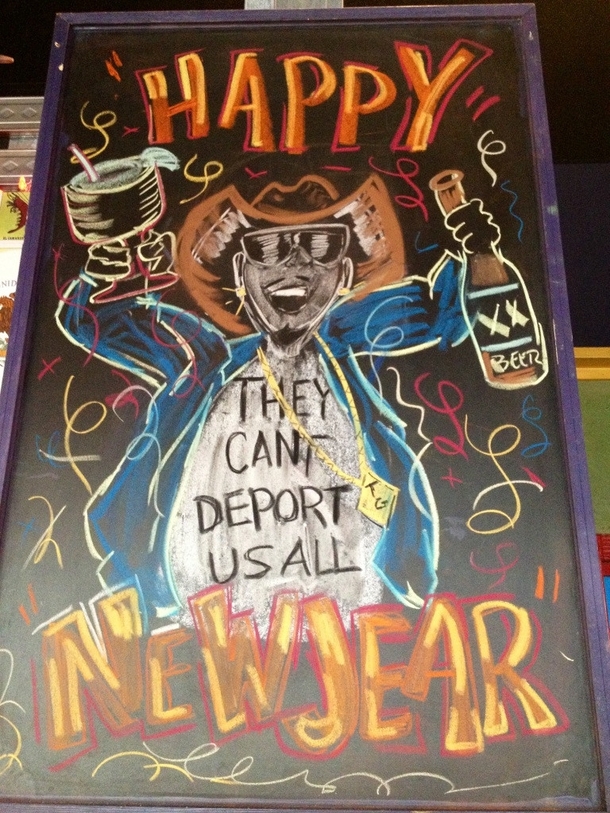 HAPPY
XX
BEER
THEY
CANT
DEPORT
US ALL
NEW JEAR